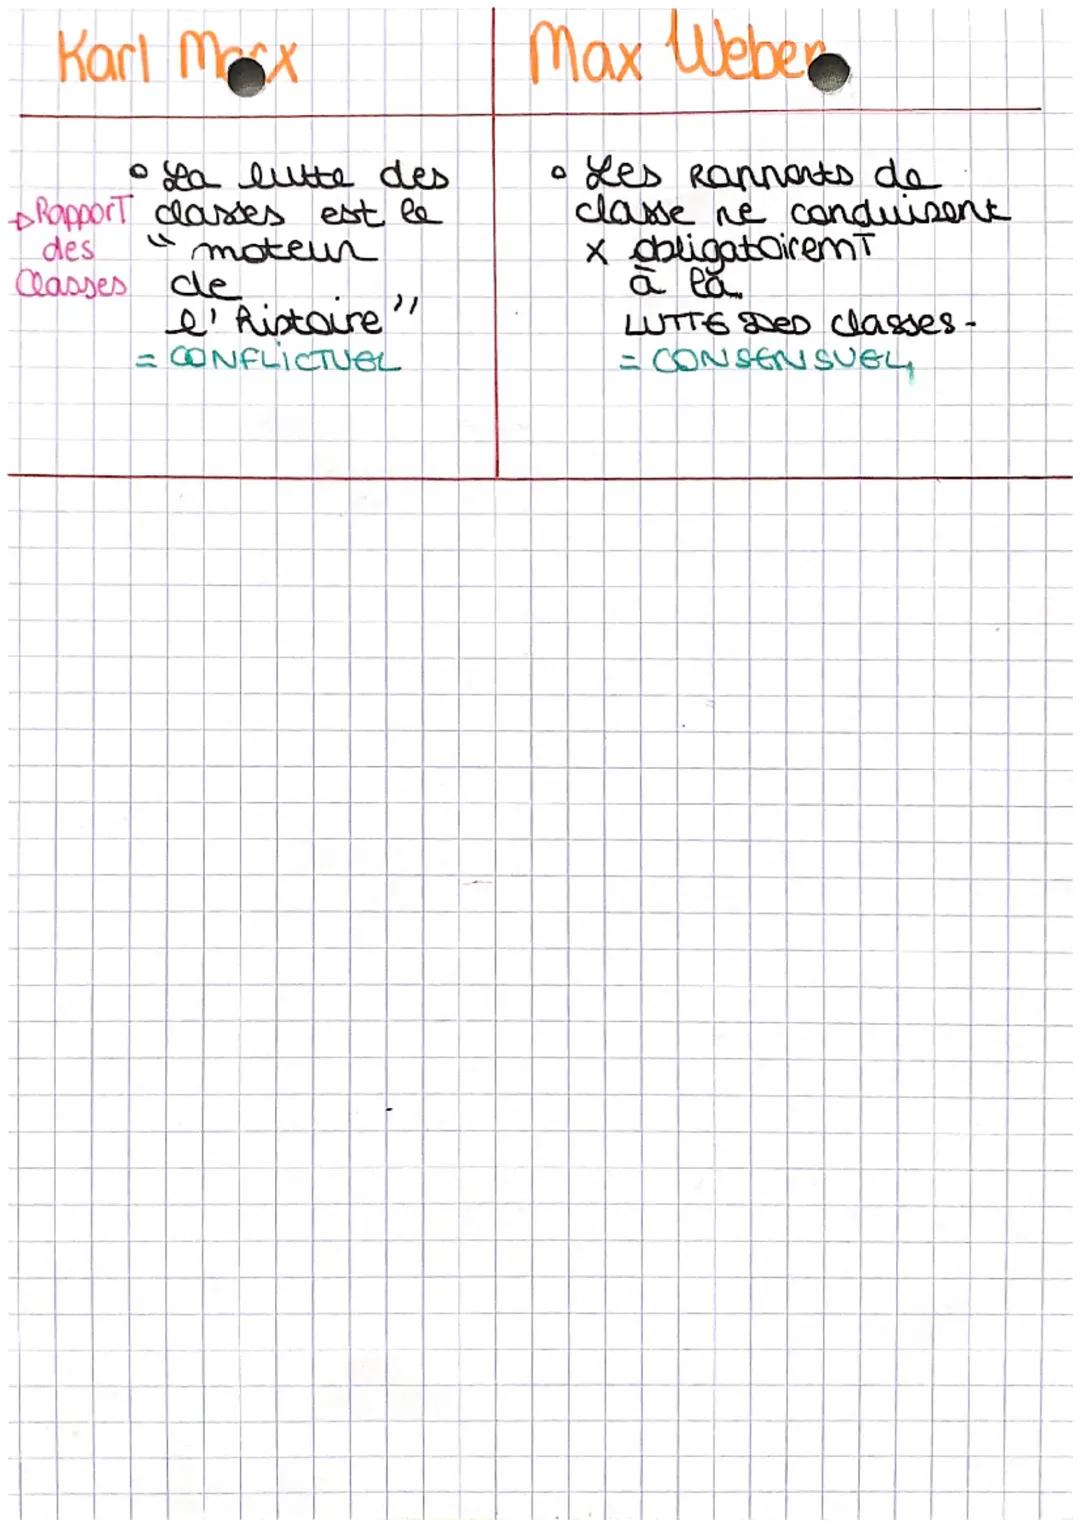 Karl Marx
Max Weber
▷ Rapport des Classes
° La lutte des
classes est le
" moteur
de
l'histoire"
= CONFLICTUEL
° Les Rapports de
classe ne conduisent
x obligatoiremT
à la
LUTTE DES classes.
= CONSENSUEL,